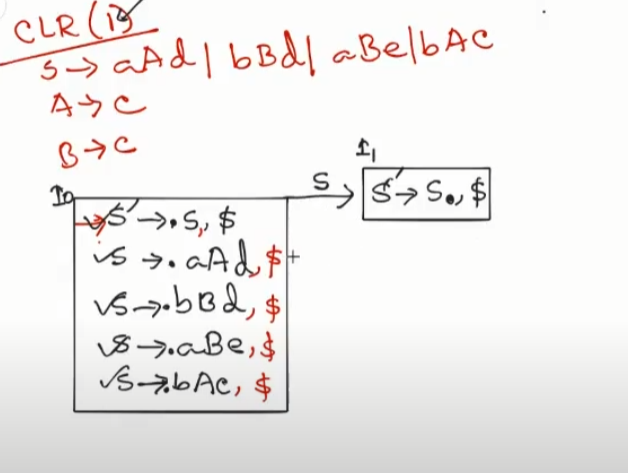 CLR(1)
S → aAd | bBd | aBe | bAc
A → c
B → c
I0
✓S' → .S, $
✓S → .aAd, $
✓S → .bBd, $
✓S → .aBe, $
✓S → .bAc, $
S
I1
S' → S., $